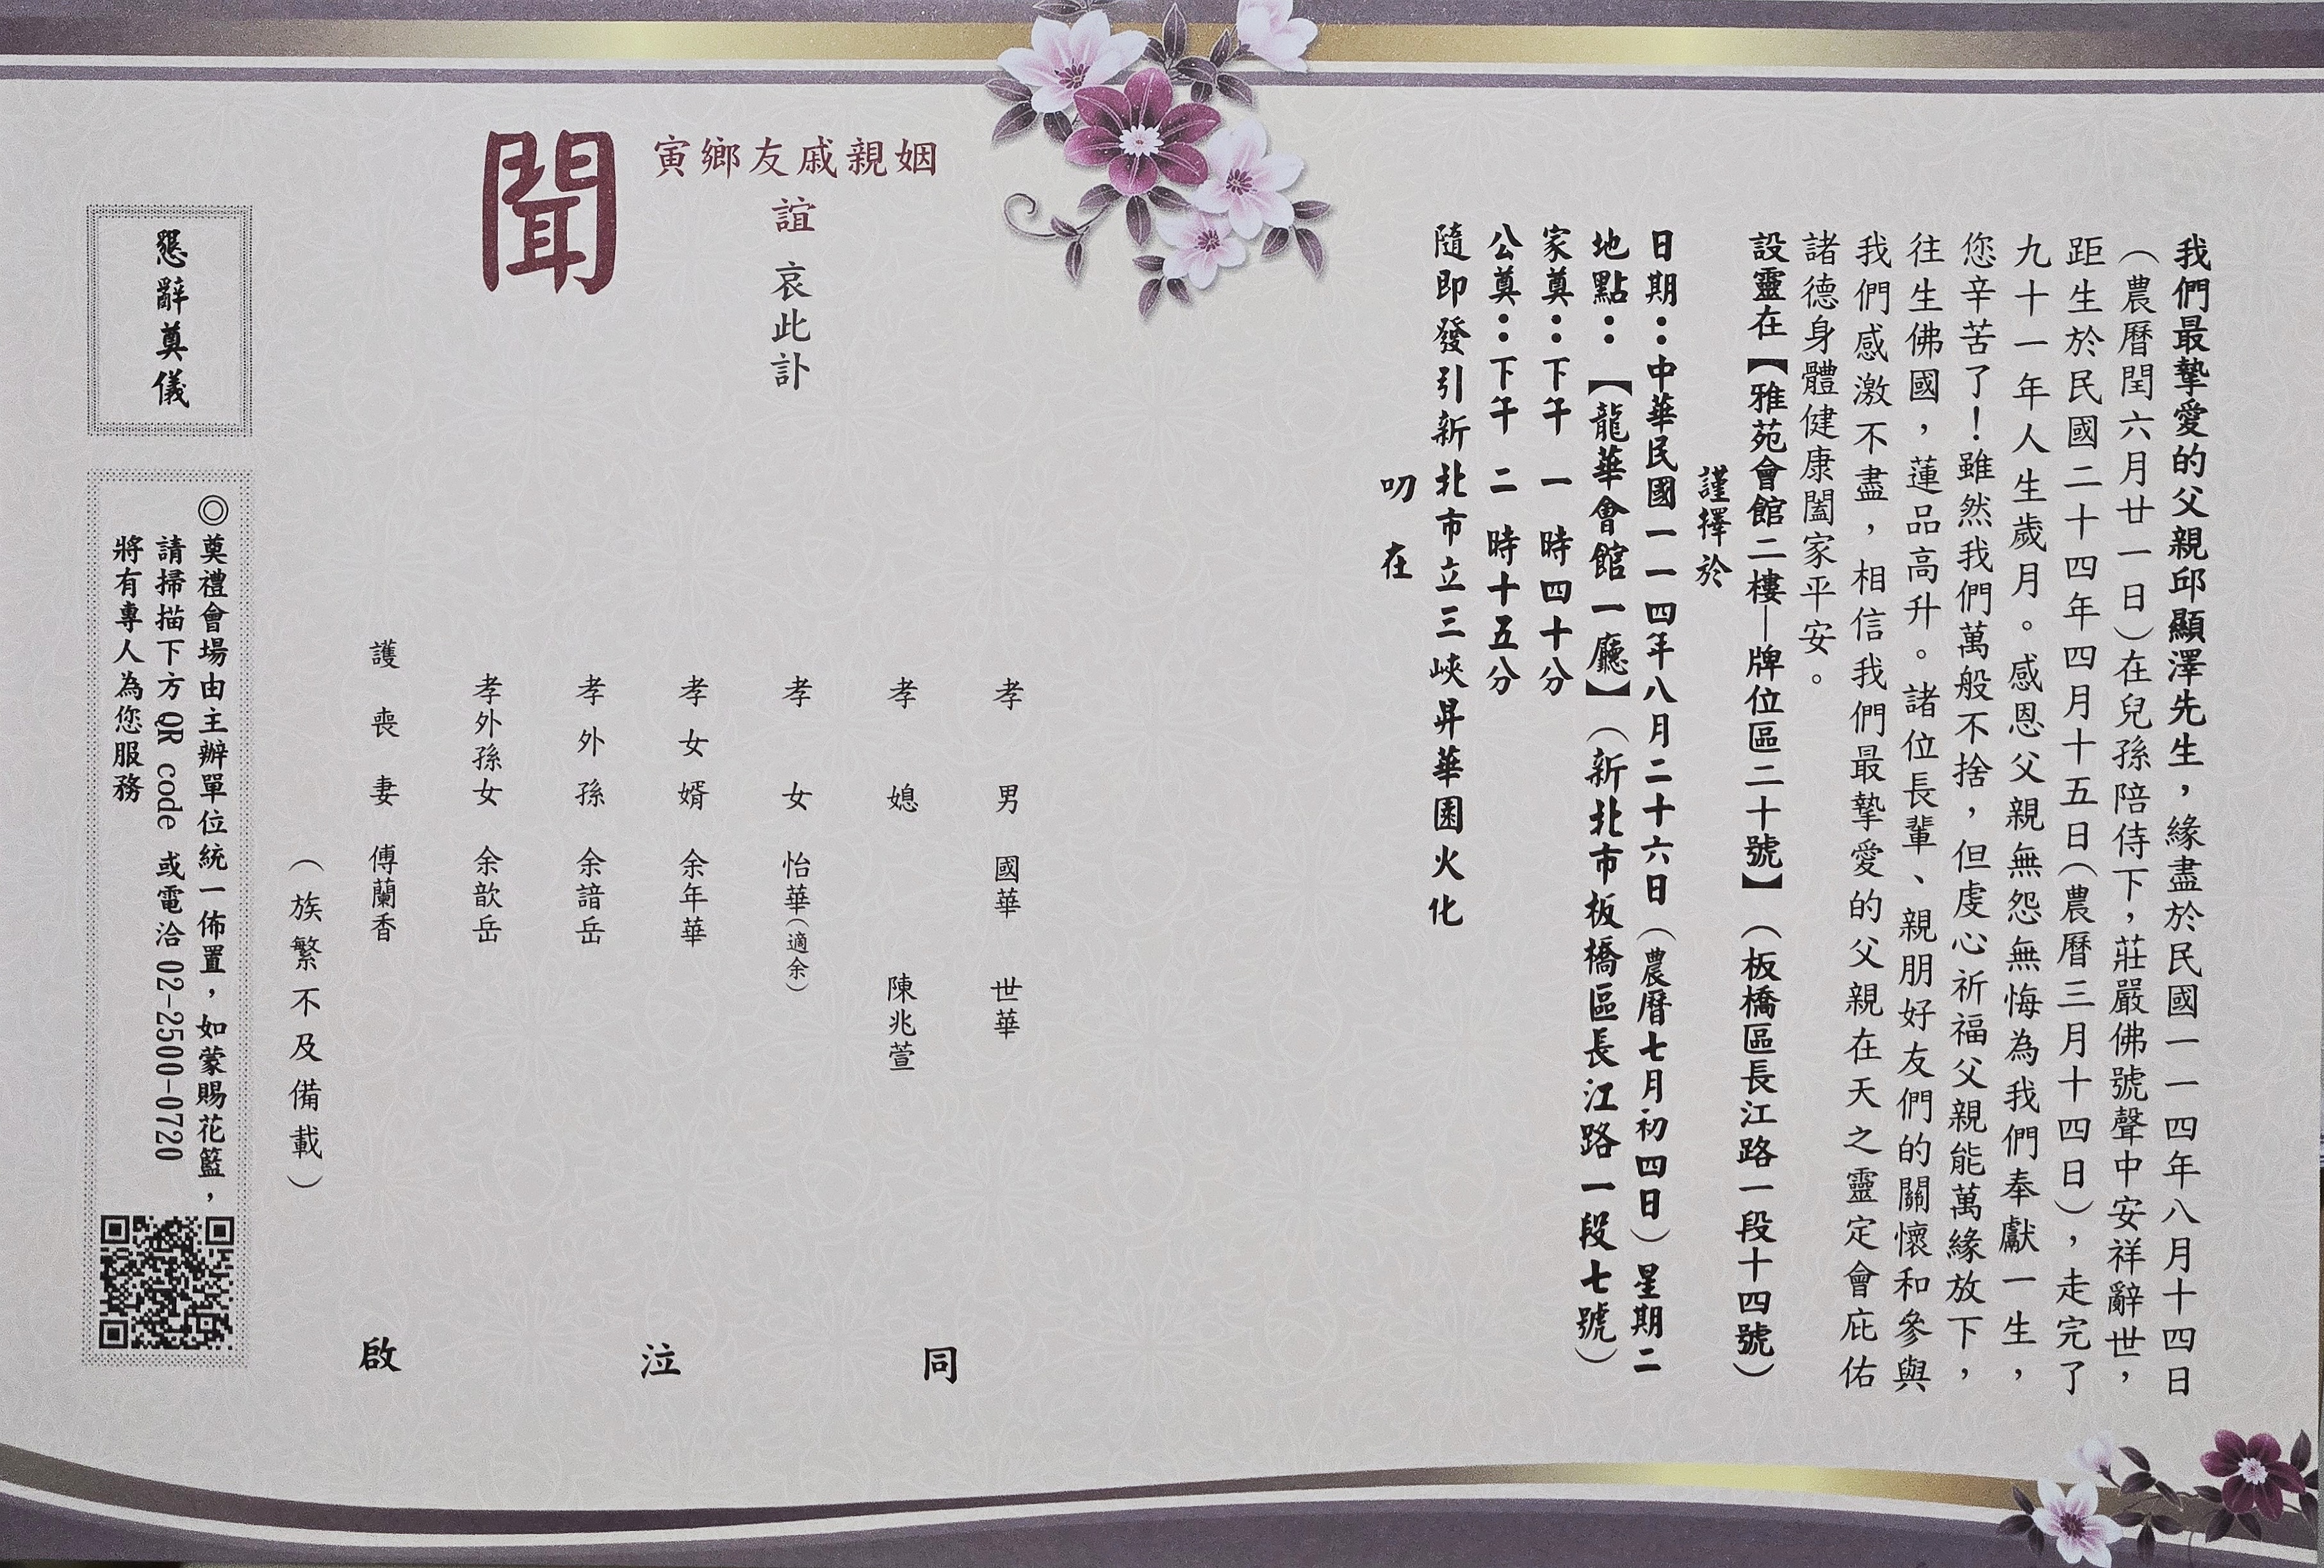 我們最摯愛的父親邱顯澤先生，緣盡於民國一一四年八月十四日
（農曆閏六月廿一日）在兒孫陪侍下，莊嚴佛號聲中安祥辭世，
距生於民國二十四年四月十五日（農曆三月十四日），走完了
九十一年人生歲月。感恩父親無怨無悔為我們奉獻一生，
您辛苦了！雖然我們萬般不捨，但虔心祈福父親能萬緣放下，
往生佛國，蓮品高升。諸位長輩、親朋好友們的關懷和參與
我們感激不盡，相信我們最摯愛的父親在天之靈定會庇佑
諸德身體健康闔家平安。
設靈在【雅苑會館二樓—牌位區二十號】（板橋區長江路一段十四號）
謹擇於
日期：中華民國一一四年八月二十六日（農曆七月初四日）星期二
地點：【龍華會館一廳】（新北市板橋區長江路一段七號）
家奠：下午 一 時四十分
公奠：下午 二 時十五分
隨即發引新北市立三峽昇華園火化
叨 在
姻親戚友鄉寅
誼 哀此訃
聞
孝 男 國華 世華
孝 媳 陳兆萱
孝 女 怡華（適余）
孝女婿 余年華
孝外孫 余諳岳
孝外孫女 余歆岳
護喪妻 傅蘭香
同 泣 啟
（族繁不及備載）
懇辭奠儀
◎奠禮會場由主辦單位統一佈置，如蒙賜花籃，
請掃描下方 QR code 或電洽 02-2500-0720
將有專人為您服務